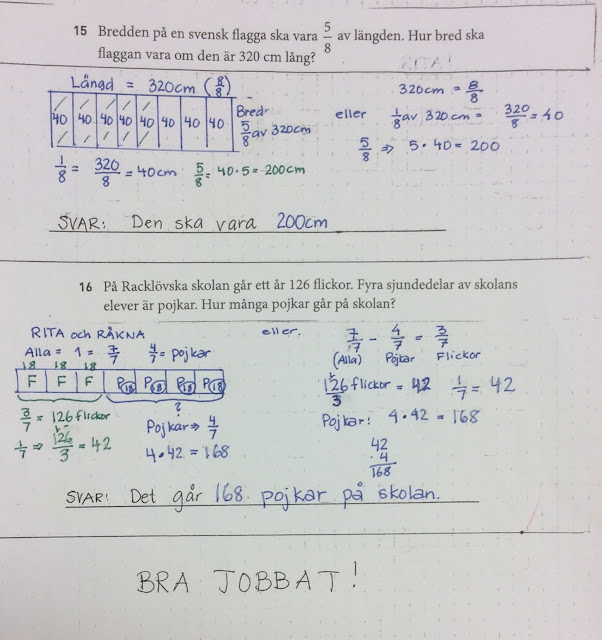 15 Bredden på en svensk flagga ska vara 5/8 av längden. Hur bred ska
flaggan vara om den är 320 cm lång?
Längd = 320cm (8/8)
40 40 40 40 40 40 40 40
Bred:
5/8 av 320cm
1/8 = 320/8 = 40cm 5/8 = 40·5 = 200cm
eller
320cm = 8/8
1/8 av 320.cm = 320/8 = 40
5/8 ⇒ 5·40 = 200
SVAR: Den ska vara 200cm
16 På Racklövska skolan går ett år 126 flickor. Fyra sjundedelar av skolans
elever är pojkar. Hur många pojkar går på skolan?
RITA och RÄKNA
Alla = 1 = 7/7 4/7 = pojkar
18 18 18
F F F P(18) P(18) P(18) P(18)
?
3/7 = 126 flickor
1/7 ⇒ 126/3 = 42
Pojkar ⇒ 4/7
4·42 = 168
eller.
7/7 - 4/7 = 3/7
(Alla) Pojkar Flickor
126 flickor/3 = 42 1/7 = 42
Pojkar: 4·42 = 168
42
· 4
168
SVAR: Det går 168 pojkar på skolan.
BRA JOBBAT!